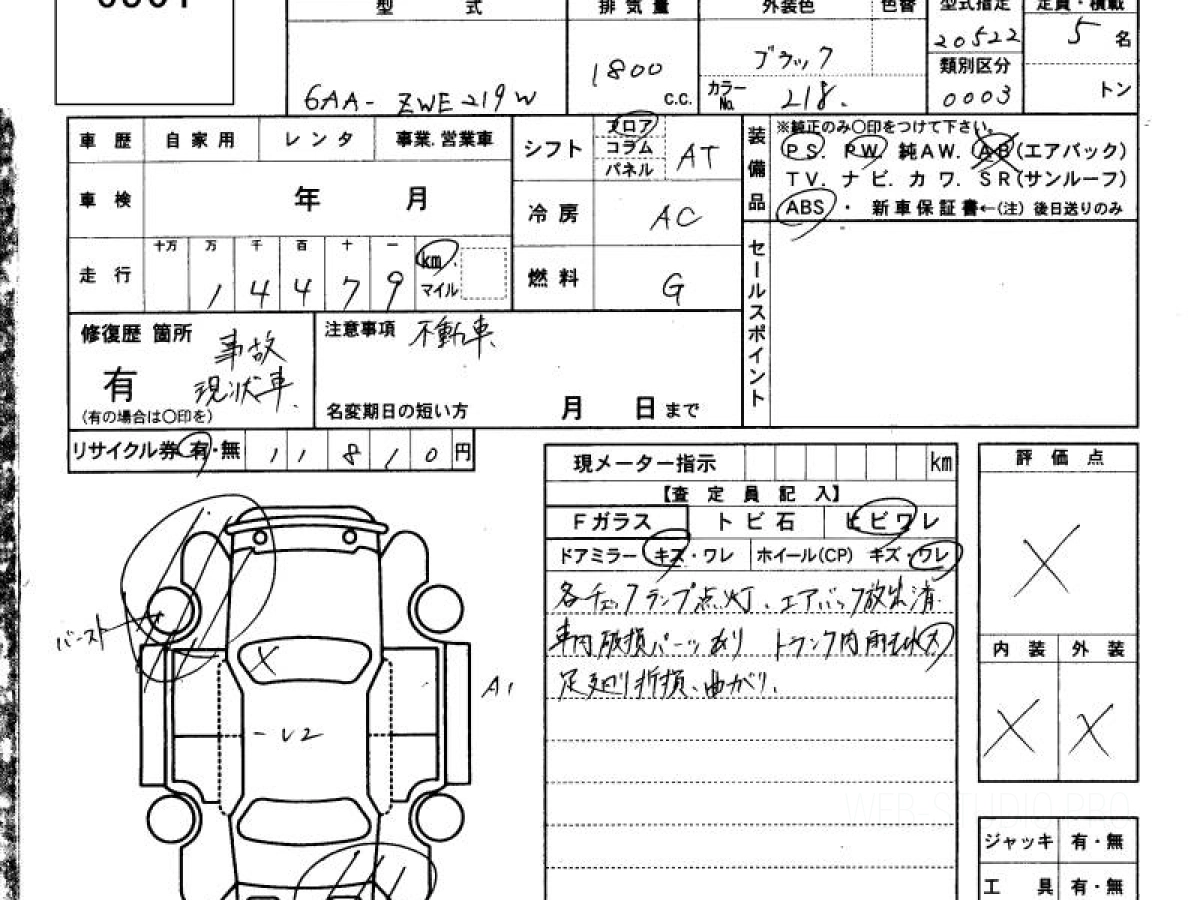 型 式 排 気 量 外装色 色替 型式指定 定員・積載
6AA- ZWE219W 1800 c.c. ブラック 20522 5 名
カラーNo. 218. 類別区分 0003 トン
車 歴 自 家 用 レ ン タ 事業.営業車
車 検 年 月
走 行 十万 万 千 百 十 一 km. マイル
1 4 4 7 9
シフト フロア コラム パネル AT
冷 房 AC
燃 料 G
装備品 ※純正のみ〇印をつけて下さい。
PS. PW. 純AW. AB(エアバック)
TV. ナビ. カワ. SR(サンルーフ)
ABS ・ 新車保証書←(注) 後日送りのみ
セールスポイント
修復歴 箇所 事故
有 現状車.
(有の場合は〇印を)
注意事項 不動車.
名変期日の短い方 月 日まで
リサイクル券 有・無 1 1 8 1 0 円
現メーター指示 km
【査 定 員 記 入】
Fガラス トビ石 ヒビワレ
ドアミラー キズ・ワレ ホイール(CP) キズ・ワレ
各チェックランプ点灯、エアバック放出済.
車内破損パーツあり トランク内雨もれ大
足廻り折損、曲がり.
バースト
X
A1
U2
評 価 点
X
内 装 外 装
X X
ジャッキ 有・無
工 具 有・無
WEB-STUDIO.PRO